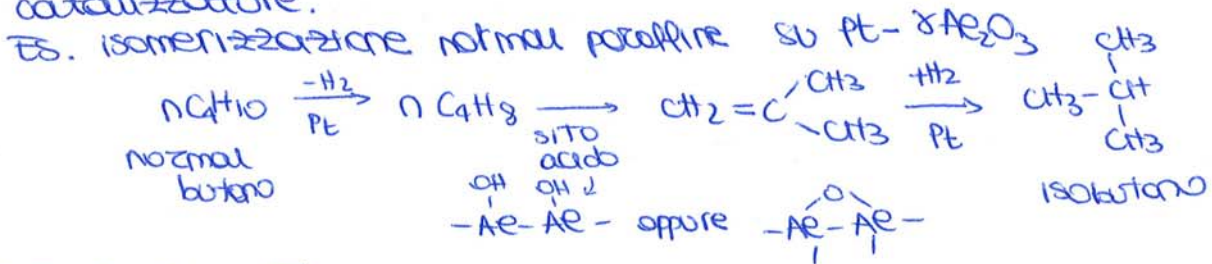 catalizzatore.
ES. isomerizzazione normal paraffine su Pt-γAl2O3
nC4H10 -H2 → Pt nC4H8 → SITO acido CH2=C CH3 CH3 +H2 → Pt CH3-CH CH3 CH3
normal butano
isobutano
OH OH
-Al-Al- oppure -Al-O-Al-